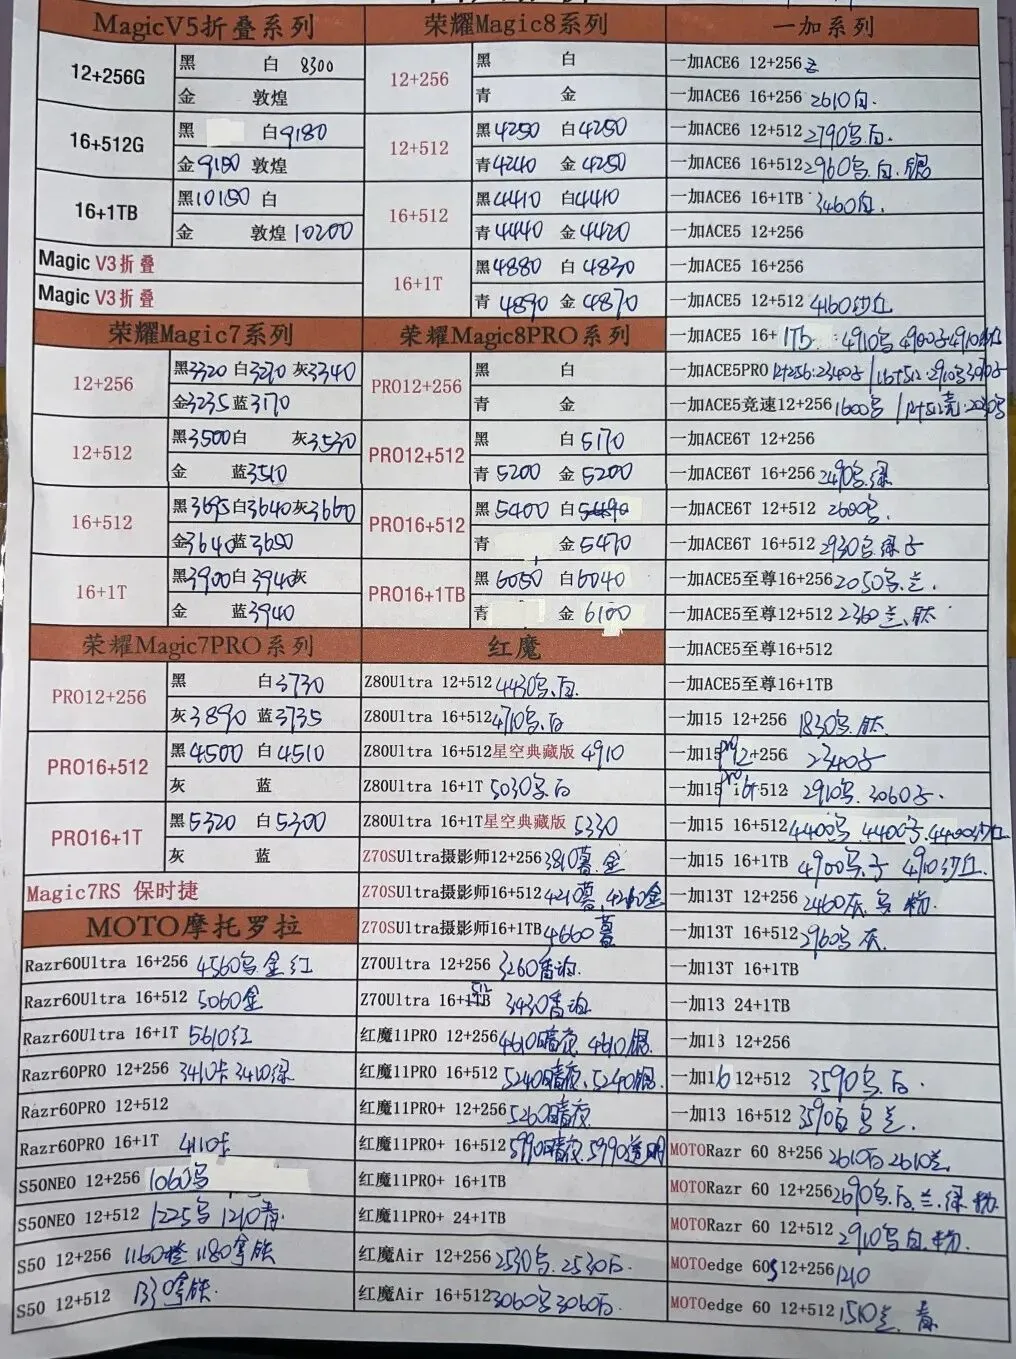 MagicV5折叠系列
12+256G
黑 白 8300
金 敦煌
16+512G
黑 白9180
金9180 敦煌
16+1TB
黑10180 白
金 敦煌10200
Magic V3折叠
Magic V3折叠
荣耀Magic7系列
12+256
黑3320 白3270 灰3340
金3235 蓝3170
12+512
黑3500 白 灰3530
金 蓝3510
16+512
黑3695 白3640 灰3660
金3640 蓝3650
16+1T
黑3900 白3940 灰
金 蓝3940
荣耀Magic7PRO系列
PRO12+256
黑 白3730
灰3890 蓝3735
PRO16+512
黑4500 白4510
灰 蓝
PRO16+1T
黑5320 白5300
灰 蓝
Magic7RS 保时捷
MOTO摩托罗拉
Razr60Ultra 16+256 4560乌.金.红
Razr60Ultra 16+512 5060金
Razr60Ultra 16+1T 5610红
Razr60PRO 12+256 3410卡 3410绿
Razr60PRO 12+512
Razr60PRO 16+1T 4110卡
S50NEO 12+256 1060乌
S50NEO 12+512 1225乌 1210青
S50 12+256 1160橙 1180拿铁
S50 12+512 1330拿铁.
荣耀Magic8系列
12+256
黑 白
青 金
12+512
黑4250 白4250
青4240 金4250
16+512
黑4410 白4410
青4440 金4420
16+1T
黑4880 白4830
青4890 金4870
荣耀Magic8PRO系列
PRO12+256
黑 白
青 金
PRO12+512
黑 白5170
青5200 金5200
PRO16+512
黑5400 白5490
青 金5470
PRO16+1TB
黑6050 白6040
青 金6100
红魔
Z80Ultra 12+512 4430乌.白.
Z80Ultra 16+512 4710乌.白
Z80Ultra 16+512星空典藏版 4910
Z80Ultra 16+1T 5030乌.白
Z80Ultra 16+1T星空典藏版 5330
Z70SUltra摄影师12+256 3810暮.金
Z70SUltra摄影师16+512 4210暮.4260金
Z70SUltra摄影师16+1TB 4660暮
Z70Ultra 12+256 3260琥珀
Z70Ultra 16+512 3430琥珀
红魔11PRO 12+256 4610暗夜 4610银.
红魔11PRO 16+512 5240暗夜.5240银.
红魔11PRO+ 12+256 5260暗夜
红魔11PRO+ 16+512 5990暗夜.5990透明
红魔11PRO+ 16+1TB
红魔11PRO+ 24+1TB
红魔Air 12+256 2530乌.2530白.
红魔Air 16+512 3060乌 3060白.
一加系列
一加ACE6 12+256
一加ACE6 16+256 2610白.
一加ACE6 12+512 2790乌.白.
一加ACE6 16+512 2960乌.白.银
一加ACE6 16+1TB 3460白.
一加ACE5 12+256
一加ACE5 16+256
一加ACE5 12+512 4160沙丘
一加ACE5 16+1Tb: 4910乌 4900紫 4910沙丘
一加ACE5PRO 12+256:2340紫 /16+512:2910乌3070紫
一加ACE5竞速12+256 1600乌 /12+512竞:2030乌
一加ACE6T 12+256
一加ACE6T 16+256 2490乌.绿
一加ACE6T 12+512 2600乌.
一加ACE6T 16+512 2930乌.绿.紫
一加ACE5至尊16+256 2050乌.兰.
一加ACE5至尊12+512 2360兰.钛
一加ACE5至尊16+512
一加ACE5至尊16+1TB
一加15 12+256 1830乌.钛
一加15pro 12+256 2340紫
一加15pro 16+512 2910乌.3060紫.
一加15 16+512 4400乌.4400紫.4400沙丘
一加15 16+1TB 4900乌.紫 4910沙丘
一加13T 12+256 2460灰.乌.粉.
一加13T 16+512 2960乌.灰.
一加13T 16+1TB
一加13 24+1TB
一加13 12+256
一加16 12+512 3590乌.白.
一加13 16+512 3590白.乌.兰.
MOTORazr 60 8+256 2610白 2610兰.
MOTORazr 60 12+256 2690乌.白.兰.绿.粉
MOTORazr 60 12+512 2910乌.白.粉.
MOTOedge 60S 12+256 1210
MOTOedge 60 12+512 1510兰.青.